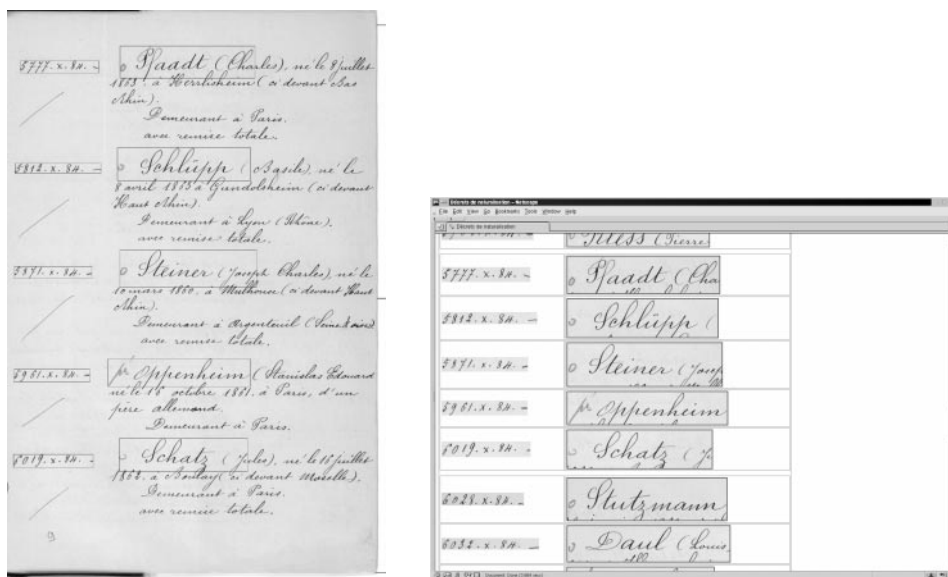 5777.x.84. - Pfaadt (Charles), né le 9 juillet
1863. à Herrlisheim (ci devant Bas
Rhin).
Demeurant à Paris.
avec remise totale.
5812.x.84. - Schlüpp (Basile), né le
8 avril 1863 à Gundolsheim (ci devant
Haut Rhin).
Demeurant à Lyon (Rhône).
avec remise totale.
5871.x.84. - Steiner (Joseph Charles), né le
10 mars 1860, à Mulhouse (ci devant Haut
Rhin).
Demeurant à Argenteuil (Seine & oise)
avec remise totale.
5961.x.84. - Oppenheim (Stanislas Edouard
né le 16 octobre 1861. à Paris, d'un
père allemand.
Demeurant à Paris.
6019.x.84. - Schatz (Jules), né le 15 juillet
1862. à Boulay (ci devant Moselle).
Demeurant à Paris.
avec remise totale.
9
Décrets de naturalisation - Netscape
File Edit View Go Bookmarks Tools Window Help
Décrets de naturalisation
(Pierre
5777.x.84. - Pfaadt (Cha
5812.x.84. - Schlüpp (
5871.x.84. - Steiner (Josep
5961.x.84. - Oppenheim
6019.x.84. - Schatz (J
6028.x.84. - Stutzmann
6032.x.84. - Daul (Louis,